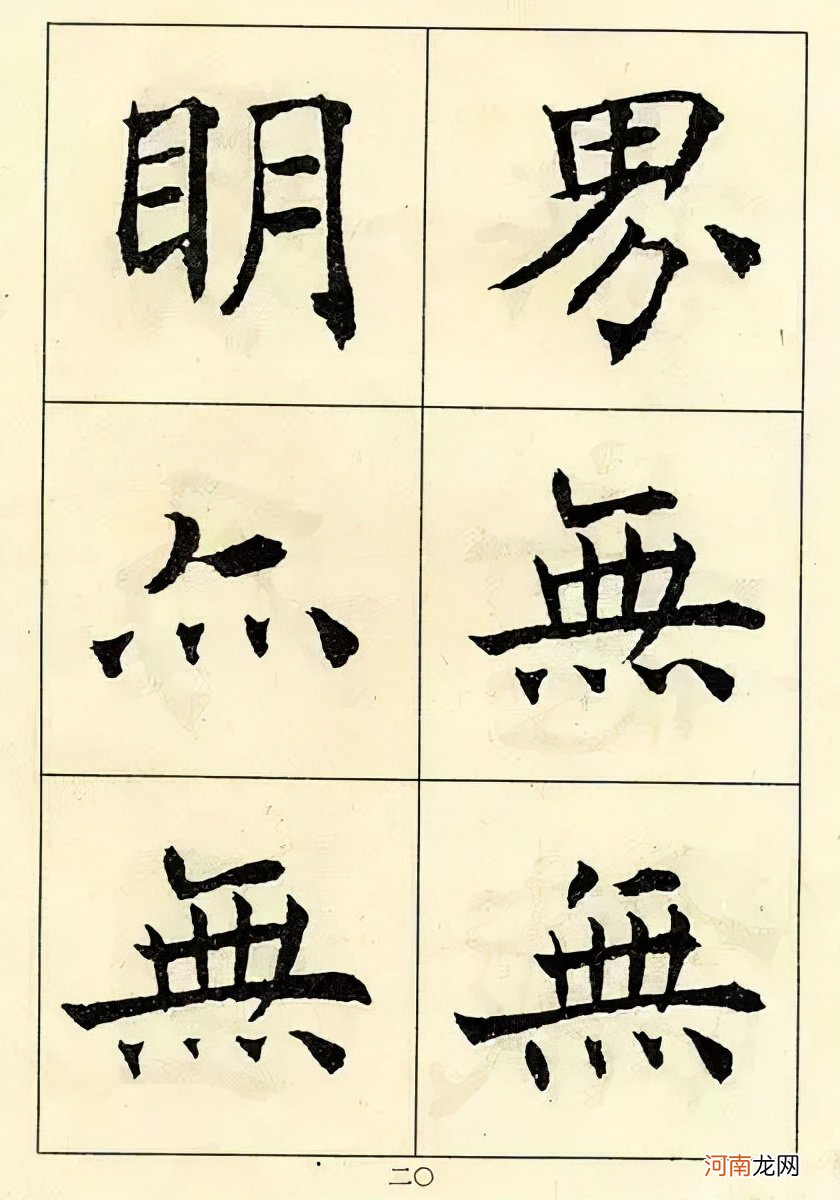 界無無
明亦無
二〇
河南龙网